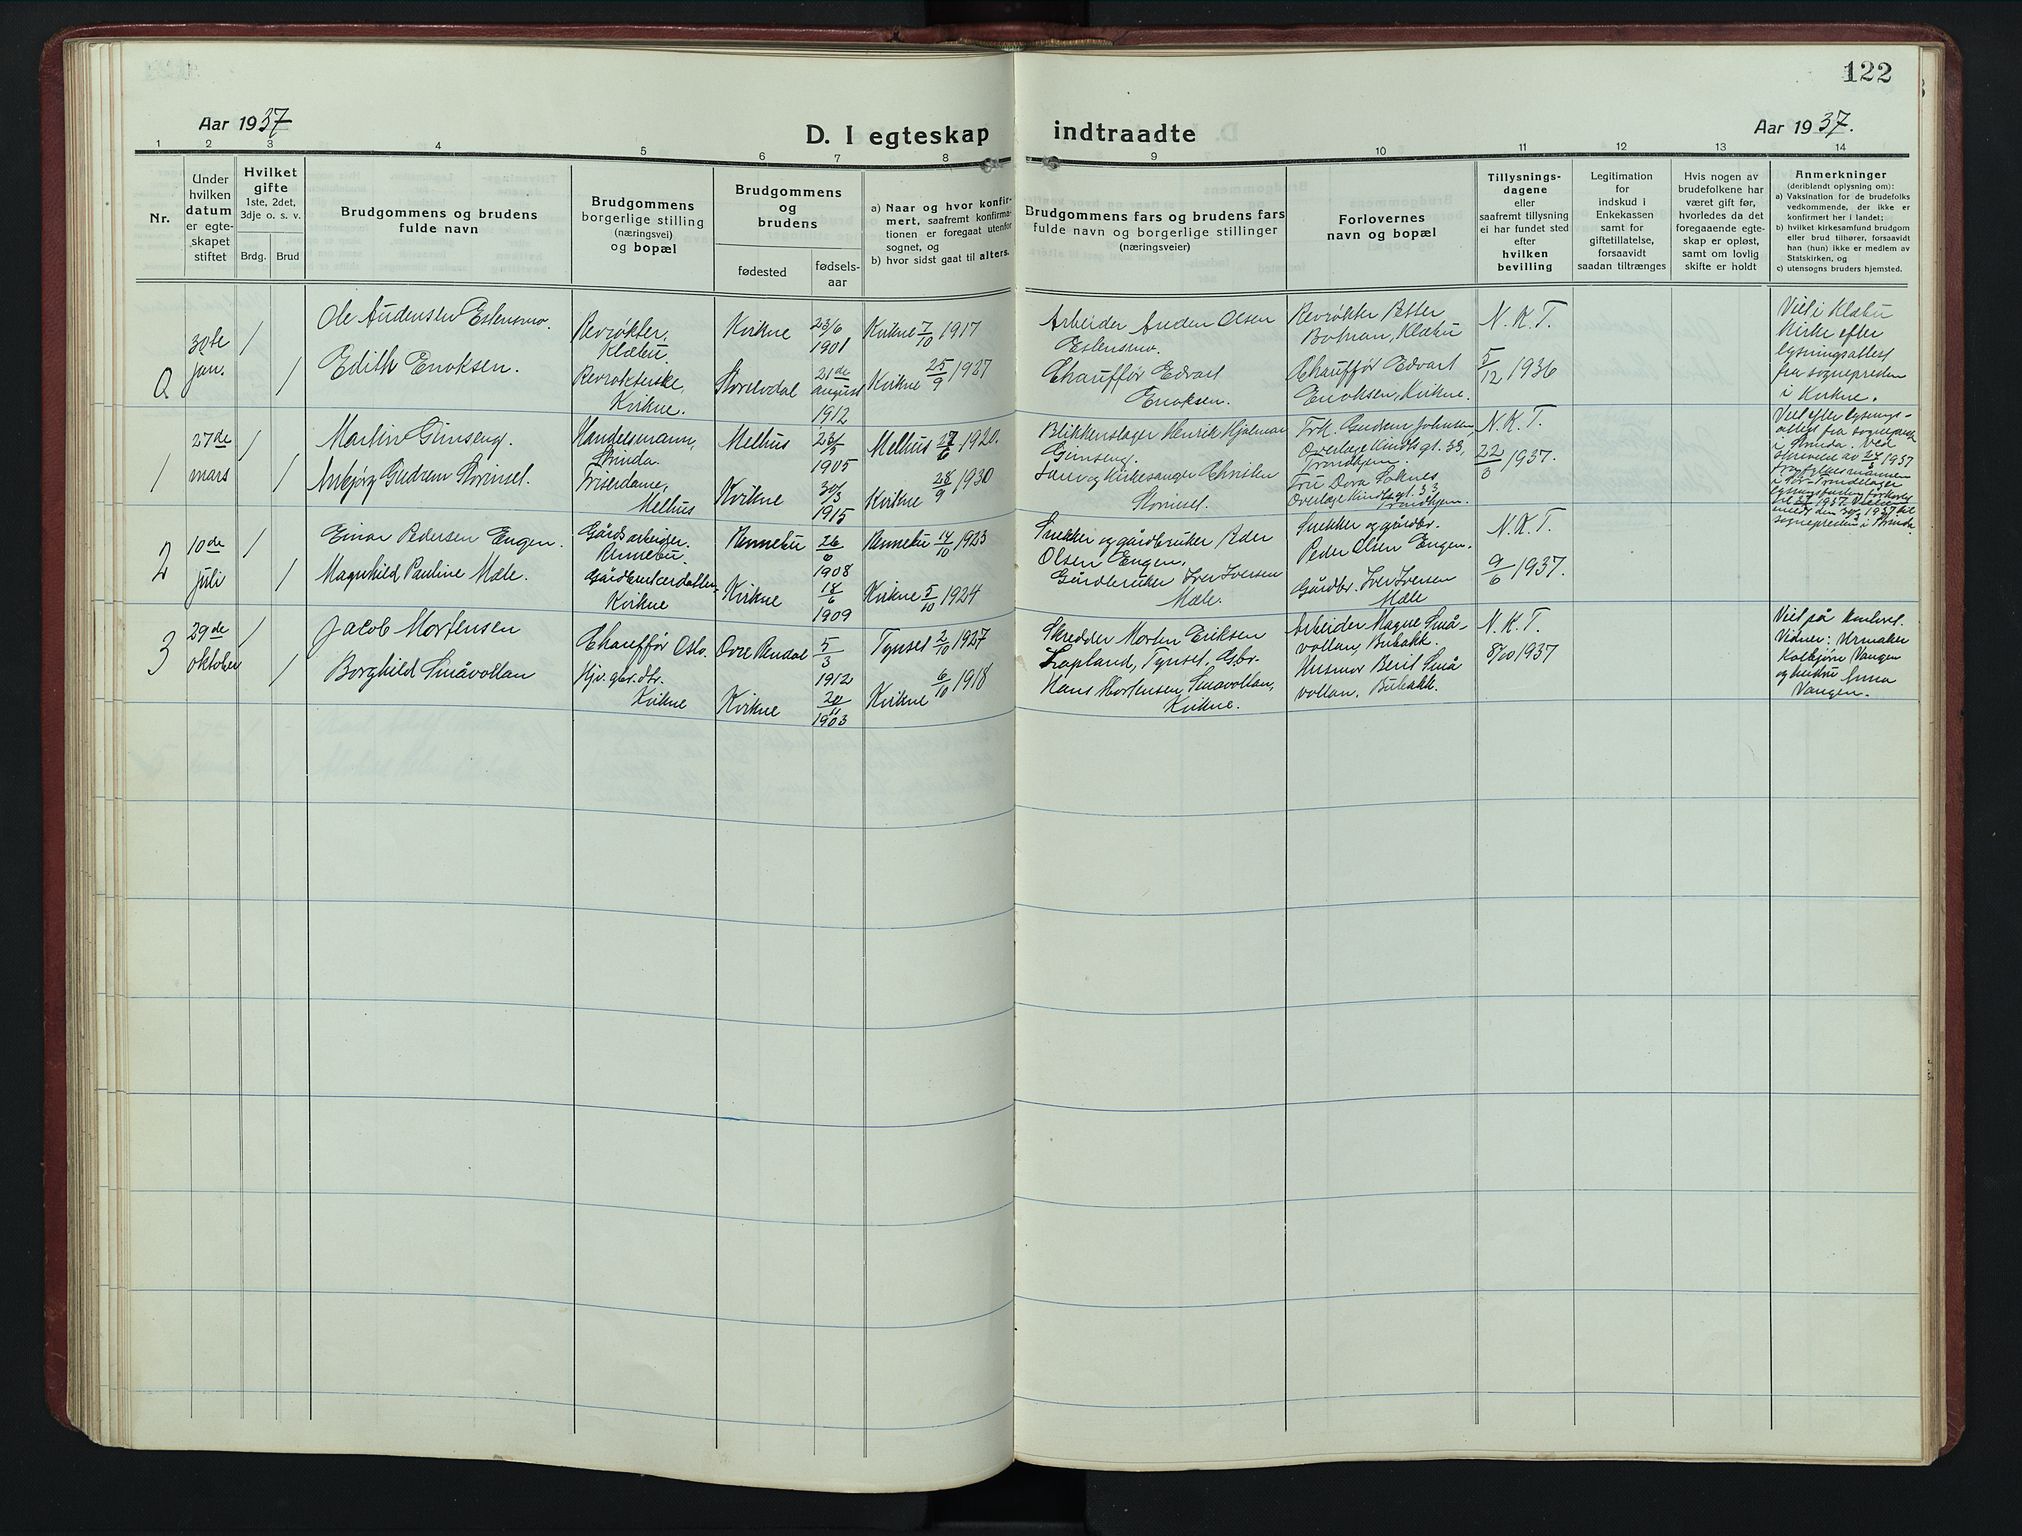 122
Aar 1937
D. I egteskap indtraadte
Aar 1937.
1 2 3 4 5 6 7 8 9 10 11 12 13 14
Nr.
Under
hvilken
datum
er egte-
skapet
stiftet
Hvilket
gifte
1ste, 2det,
3dje o. s. v.
Brdg. Brud
Brudgommens og brudens
fulde navn
Brudgommens
borgerlige stilling
(næringsvei)
og bopæl
Brudgommens
og
brudens
fødested
fødsels-
aar
a) Naar og hvor konfir-
mert, saafremt konfirma-
tionen er foregaat utenfor
sognet, og
b) hvor sidst gaat til alters.
Brudgommens fars og brudens fars
fulde navn og borgerlige stillinger
(næringsveier)
Forlovernes
navn og bopæl
Tillysnings-
dagene
eller
saafremt tillysning
ei har fundet sted
efter
hvilken
bevilling
Legitimation
for
indskud i
Enkekassen
samt for
giftetillatelse,
forsaavidt
saadan tiltrænges
Hvis nogen av
brudefolkene har
været gift før,
hvorledes da det
foregaaende egte-
skap er opløst,
samt om lovlig
skifte er holdt
Anmerkninger
(deriblandt oplysning om):
a) Vaksination for de brudefolks
vedkommende, der ikke er
konfirmert her i landet;
b) hvilket kirkesamfund brudgom
eller brud tilhører, forsaavidt
han (hun) ikke er medlem av
Statskirken, og
c) utensogns bruders hjemsted.
0
30te
jan.
1
1
Ole Audensen Estensmo.
Edith Enoksen.
Revrøkter,
Klæbu.
Revrøkterske,
Kvikne.
Kvikne
Storelvdal
23/6
1901
21de
august
1912
Kvikne 7/10 1917
Kvikne 25/9 1927
Arbeider Auden Olsen
Estensmo.
Chauffør Edvart
Enoksen.
Revrøkter Petter
Klæbu
Chauffør Edvart
Enoksen, Kvikne.
N. K. T.
5/12 1936
Viet i Klæbu
kirke efter
lysningsattest
fra sognepresten
i Kvikne.
1
27de
mars
1
1
Martin Gimseng.
Anbjørg Gudrun Storinsel.
Handelsmann,
Strinda.
Frisørdame,
Melhus
Melhus
Kvikne
1905
30/3
1915
Melhus 27/6 1920.
Kvikne 28/9 1930
Blikkenslager Henrik Hjalmar
Gimseng.
Lærer og Kirkesanger Christen
Storinsel.
Frk. Gudrun Johnsen,
Overlege Kindts gt. 33,
Trondhjem.
Fru Dora Soknes
Overlege Kindts gt. 33
Trondhjem.
N. K. T.
22/3 1937.
Viet efter lysnings-
attest fra sogneprest
i Strinda. Ved
skrivelse av 27/3 1937
fra fylkesmannen
i Sør-Trøndelag er
sognepresten i Strinda.
2
10de
juli
1
1
Einar Pedersen Engen.
Magnhild Pauline Mæle.
Gårdsarbeider.
Rennebu.
Kvikne
Rennebu
Kvikne
1908
18/6
1909
Rennebu 14/10 1923
Kvikne 5/10 1924
Snekker og gårdbruker Peder
Olsen Engen.
Gårdbruker Iver Iversen
Mæle.
Snekker og gårdbr.
Peder Olsen Engen.
Gårdbr. Iver Iversen
Mæle
N. K. T.
9/6 1937.
3
29de
oktober
1
1
Jacob Mortensen
Borghild Småvollan
Chauffør Oslo.
Hjv. gbr. dtr.
Kvikne
Øvre Rendal
Kvikne
5/3
1912
20/11
1903
Tynset 2/10 1927
Kvikne 6/10 1918
Skredder Morten Eriksen
Lapland, Tynset. Gbr.
Hans Mortensen Småvollan,
Kvikne.
Arbeider Magne Små-
vollan, Bubakk.
Husmor Berit Små
vollan, Bubakk.
N. K. T.
8/10 1937
Viet på kontoret.
Vidner: Urmaker
Kolbjørn Vangen
og hustru Anna
Vangen.